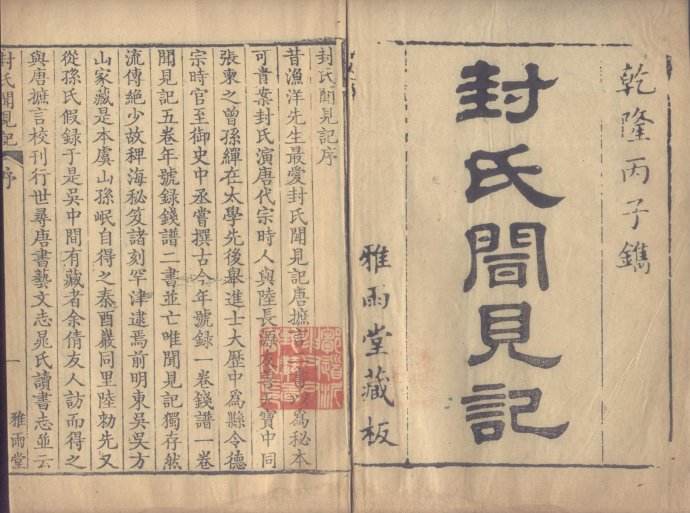 乾隆丙子鐫
封氏聞見記
雅雨堂藏板
封氏聞見記序
昔漁洋先生最愛封氏聞見記唐摭言二書以爲秘本
可貴案封氏演唐代宗時人與陸長源友善天寶中同
張柬之曾孫繟在太學先後舉進士大歷中爲縣令德
宗時官至御史中丞嘗撰古今年號録一卷錢譜一卷
聞見記五卷年號録錢譜二書並亡唯聞見記獨存然
流傳絕少故稗海秘笈諸刻罕津逮焉前明東吳吳方
山家藏是本虞山孫岷自得之秦酉巖同里陸勑先又
從孫氏假録于是吳中間有藏者余倩友人訪而得之
與唐摭言校刊行世尋唐書藝文志晁氏讀書志並云
封氏聞見記 序 一 雅雨堂